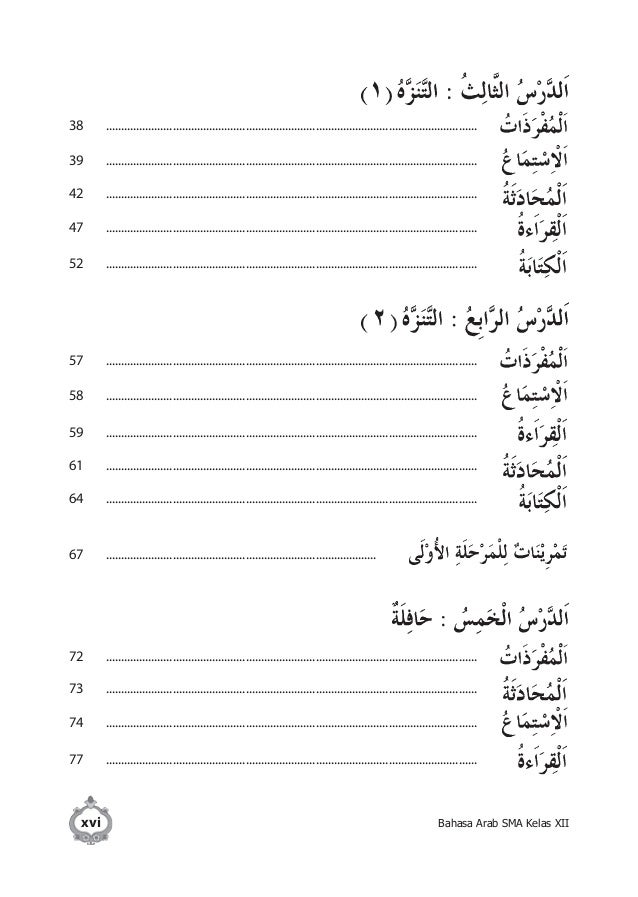 اَلدَّرْسُ الثَّالِثُ : التَّنَزَّهُ (١)
اَلْمُفْرَذَاتُ ........................ 38
اَلْاِسْتِمَاعُ ........................ 39
اَلْمُحَادَثَةُ ........................ 42
اَلْقِرَاءَةُ ........................ 47
اَلْكِتَابَةُ ........................ 52
اَلدَّرْسُ الرَّابِعُ : التَّنَزَّهُ (٢)
اَلْمُفْرَذَاتُ ........................ 57
اَلْاِسْتِمَاعُ ........................ 58
اَلْقِرَاءَةُ ........................ 59
اَلْمُحَادَثَةُ ........................ 61
اَلْكِتَابَةُ ........................ 64
تَمْرِيْنَاتٌ لِلْمَرْحَلَةِ الأُوْلَى ........................ 67
اَلدَّرْسُ الْخَمِسُ : حَافِلَةٌ
اَلْمُفْرَذَاتُ ........................ 72
اَلْمُحَادَثَةُ ........................ 73
اَلْاِسْتِمَاعُ ........................ 74
اَلْقِرَاءَةُ ........................ 77
xvi Bahasa Arab SMA Kelas XII